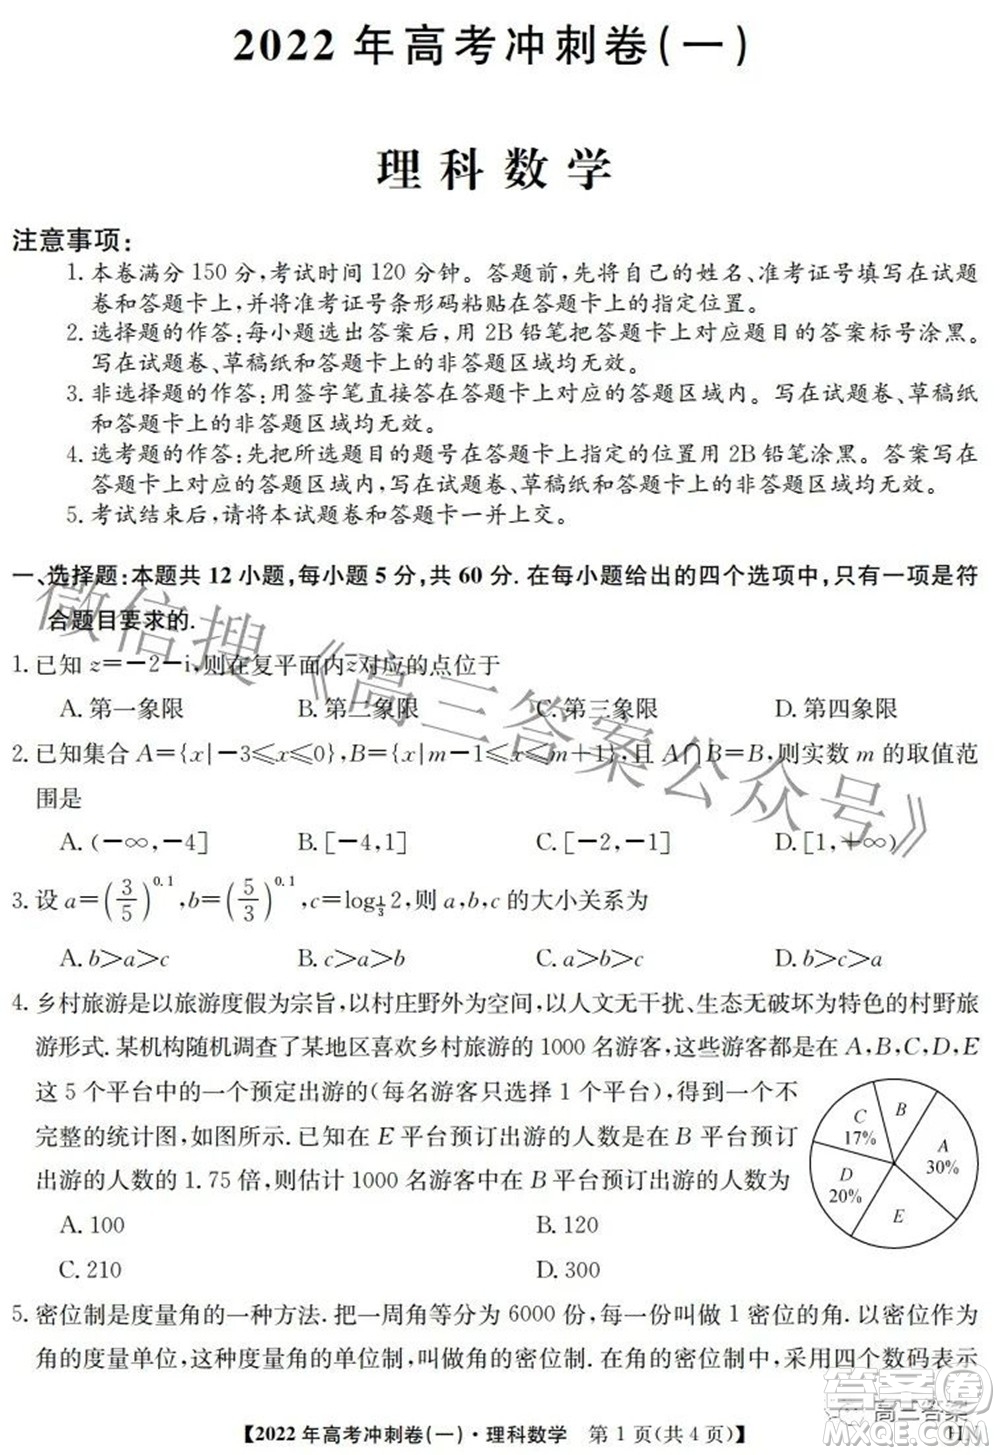 2022 年高考冲刺卷(一)
理科数学
注意事项:
1. 本卷满分 150 分,考试时间 120 分钟。答题前,先将自己的姓名、准考证号填写在试题
卷和答题卡上,并将准考证号条形码粘贴在答题卡上的指定位置。
2. 选择题的作答:每小题选出答案后,用 2B 铅笔把答题卡上对应题目的答案标号涂黑。
写在试题卷、草稿纸和答题卡上的非答题区域均无效。
3. 非选择题的作答:用签字笔直接答在答题卡上对应的答题区域内。写在试题卷、草稿纸
和答题卡上的非答题区域均无效。
4. 选考题的作答:先把所选题目的题号在答题卡上指定的位置用 2B 铅笔涂黑。答案写在
答题卡上对应的答题区域内,写在试题卷、草稿纸和答题卡上的非答题区域均无效。
5. 考试结束后,请将本试题卷和答题卡一并上交。
一、选择题:本题共 12 小题,每小题 5 分,共 60 分. 在每小题给出的四个选项中,只有一项是符
合题目要求的.
1. 已知 z=-2-i,则在复平面内 z̅ 对应的点位于
A. 第一象限 B. 第二象限 C. 第三象限 D. 第四象限
2. 已知集合 A={x|-3≤x≤0},B={x|m-1≤x≤m+1},且 A∩B=B,则实数 m 的取值范
围是
A. (-∞,-4] B. [-4,-1] C. [-2,-1] D. [1,+∞)
3. 设 a=(3/5)^0.1,b=(5/3)^0.1,c=log_{1/3}2,则 a,b,c 的大小关系为
A. b>a>c B. c>a>b C. a>b>c D. b>c>a
4. 乡村旅游是以旅游度假为宗旨,以村庄野外为空间,以人文无干扰、生态无破坏为特色的村野旅
游形式. 某机构随机调查了某地区喜欢乡村旅游的 1000 名游客,这些游客都是在 A,B,C,D,E
这 5 个平台中的一个预定出游的(每名游客只选择 1 个平台),得到一个不
完整的统计图,如图所示. 已知在 E 平台预订出游的人数是在 B 平台预订
出游的人数的 1.75 倍,则估计 1000 名游客中在 B 平台预订出游的人数为
A. 100 B. 120
C. 210 D. 300
C
17%
B
A
30%
D
20%
E
5. 密位制是度量角的一种方法. 把一周角等分为 6000 份,每一份叫做 1 密位的角. 以密位作为
角的度量单位,这种度量角的单位制,叫做角的密位制. 在角的密位制中,采用四个数码表示
【2022 年高考冲刺卷(一)·理科数学 第 1 页(共 4 页)】
HN
微信搜《高三答案公众号》
高三答案
答案圈
MXQE.COM